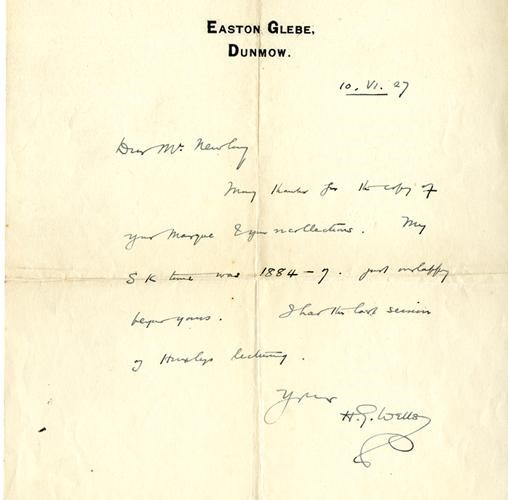 EASTON GLEBE,
DUNMOW.
10. VI. 27
Dear Mr. Newbury
Many thanks for the copy of
your Masque & your recollections. My
S K time was 1884-7. just overlapping
I had the last session
of Huxleys lecturing.
Yours
H. G. Wells